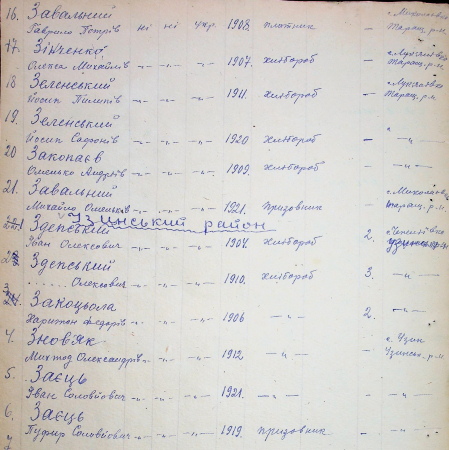 16. Завальний
Гаврило Петрів ні ні укр. 1908. плотник — с. Миколаївка
Таращ. р-н.
17. Зінченко
Олекса Михайлів -"- -"- -"- 1907. хлібороб — с. Лукʼянівка
Таращ. р-н.
18 Зеленський
Йосип Пилипів -"- -"- -"- 1911. хлібороб — с. Лукʼянівка
Таращ. р-н.
19. Зеленський
Йосип Сафонів -"- -"- -"- 1920 хлібороб — -"-
20 Закопаєв
Олелько Андріїв -"- -"- -"- 1909. хлібороб — -"-
21. Завальний
Михайло Олельків -"- -"- -"- 1921. призовник — с. Миколаївка
Таращ. р-н.
Узинський район
Здепський
Іван Олексович -"- -"- -"- 1904. хлібороб 2.
узинськ. р-н
Здепський
...... Олексович -"- -"- -"- 1910. хлібороб 3. -"-
3. Закоцьола
Харитон Федорів -"- -"- -"- 1906 -"- 2. -"-
4. Зновʼяк
Олександрів -"- -"- -"- 1912 -"- с. Узин
Узинськ. р-н.
5. Заєць
Іван Соловйович -"- -"- -"- 1921. -"- -"-
6. Заєць
Соловйович -"- -"- -"- 1919. призовник -"-